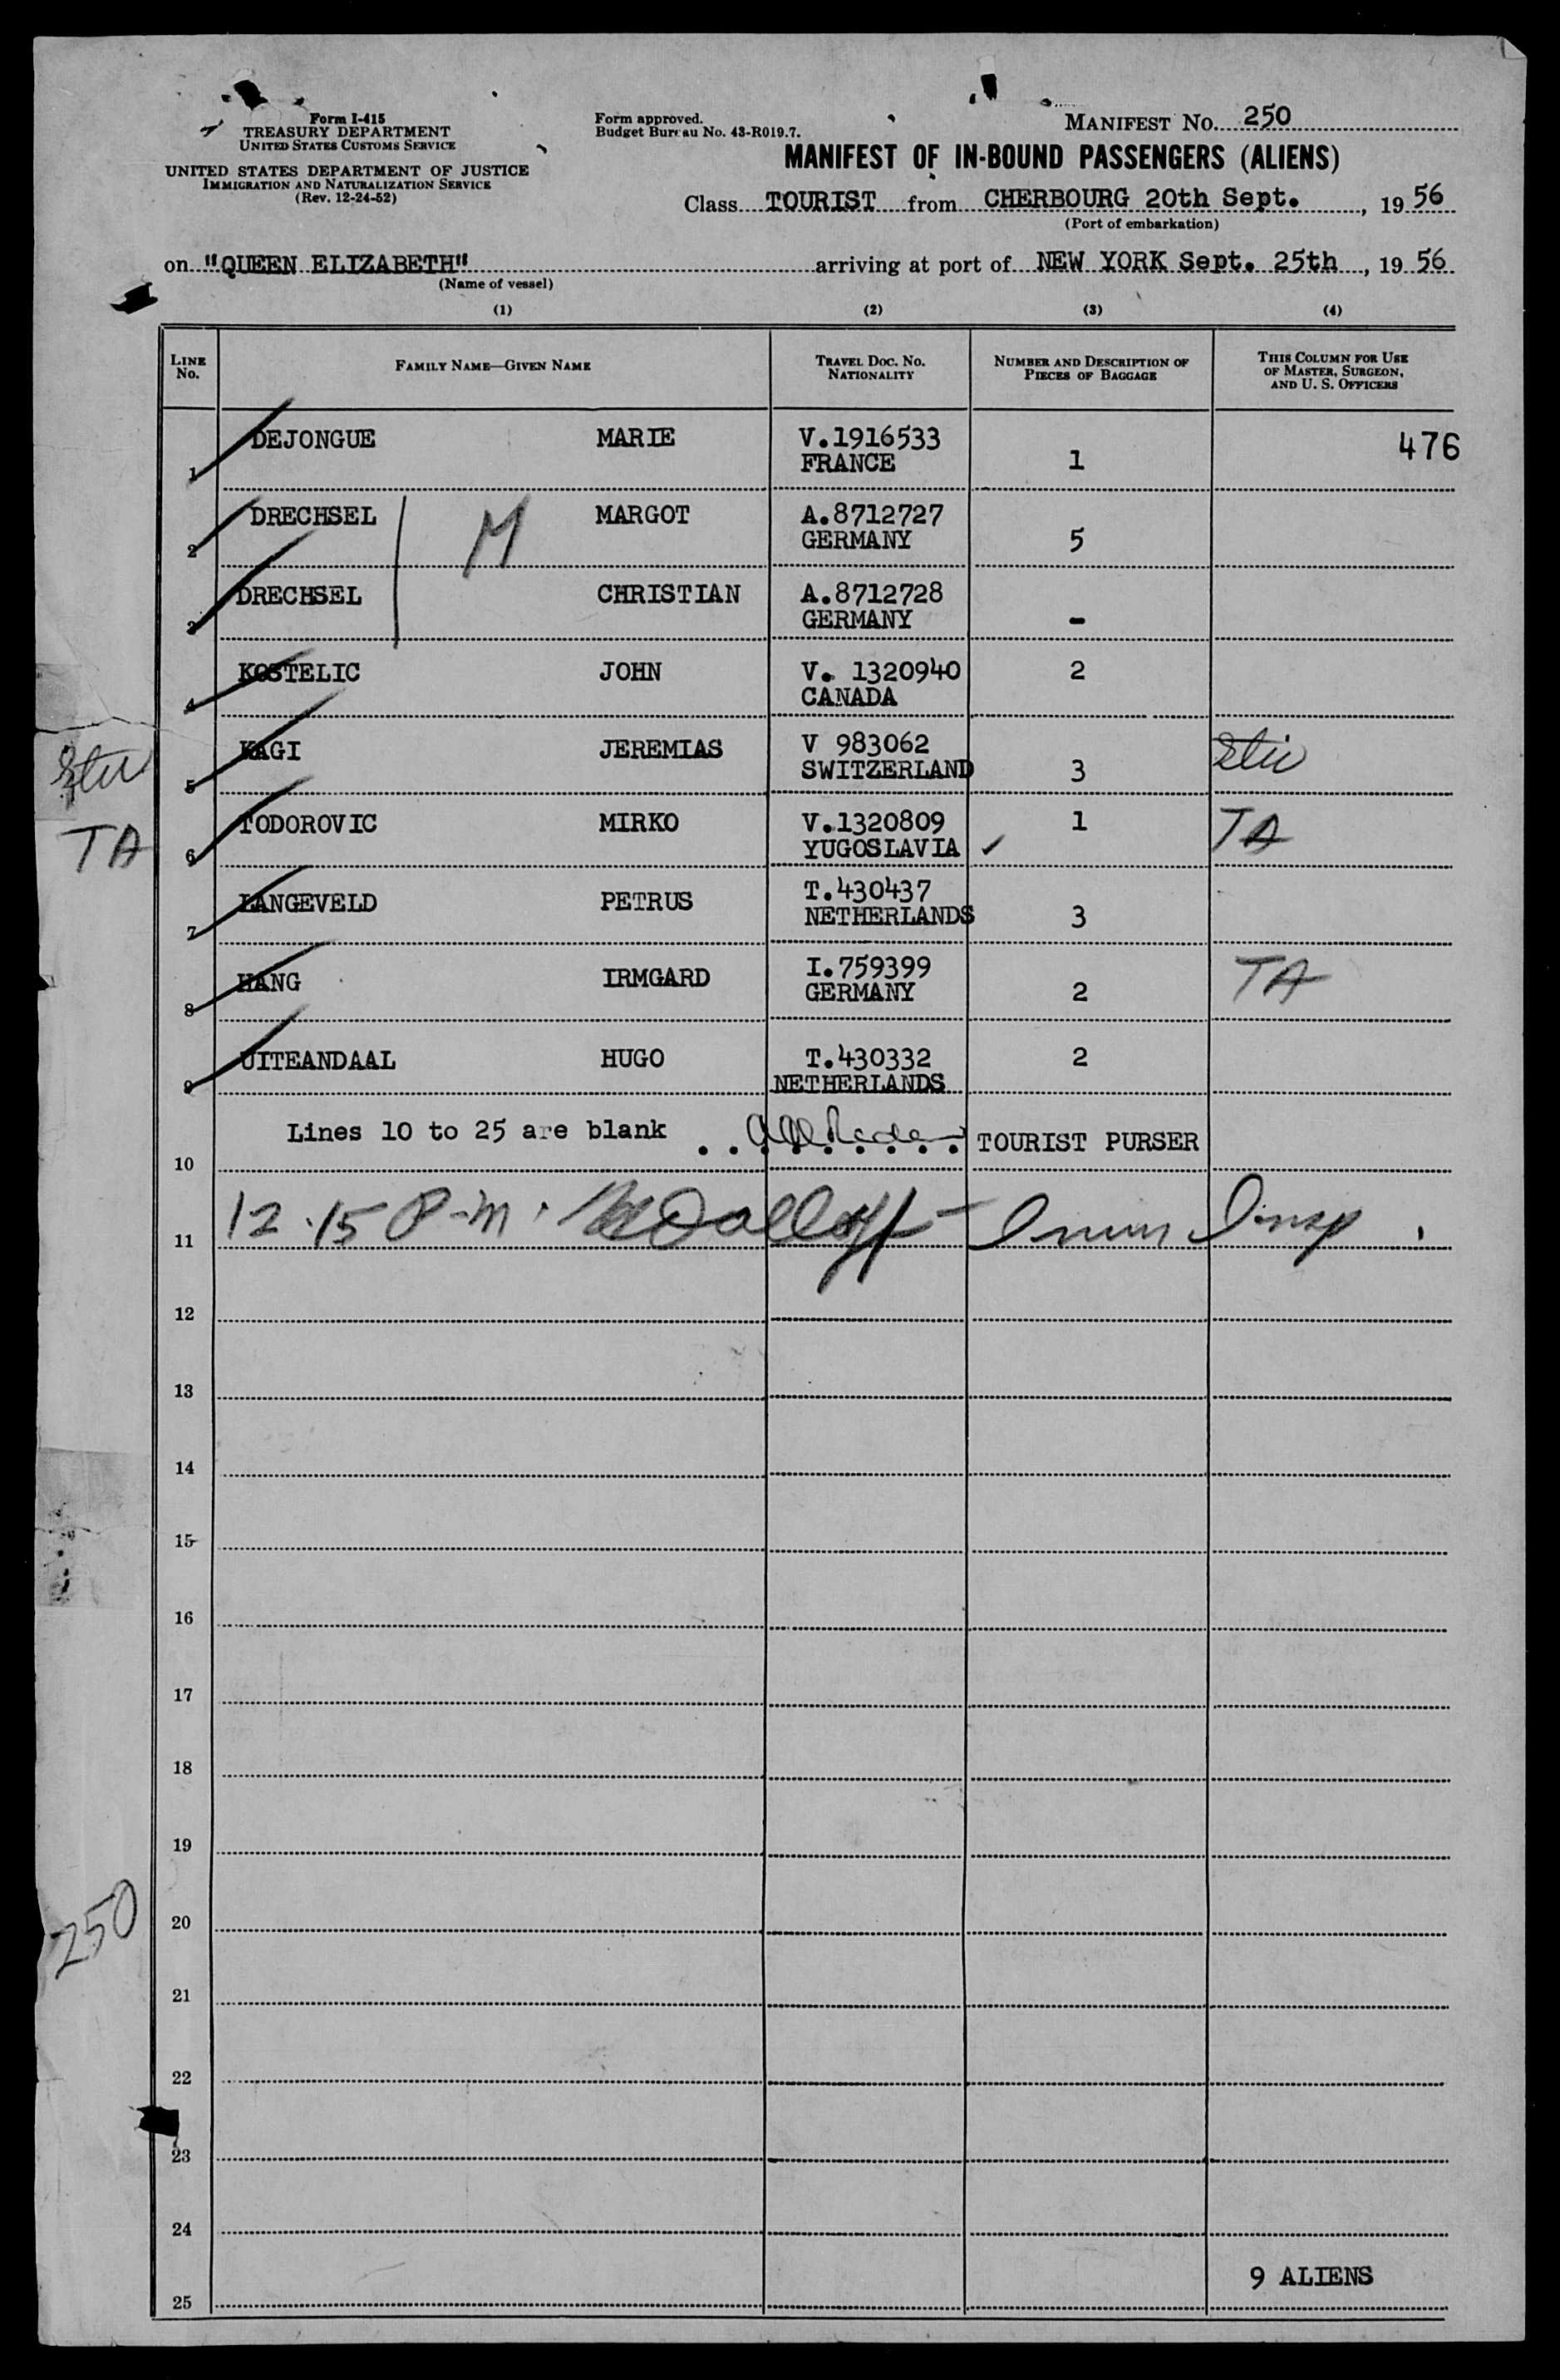 Form I-415
TREASURY DEPARTMENT
UNITED STATES CUSTOMS SERVICE
UNITED STATES DEPARTMENT OF JUSTICE
IMMIGRATION AND NATURALIZATION SERVICE
(Rev. 12-24-52)
Form approved.
Budget Bureau No. 43-R019.7.
MANIFEST NO. 250
MANIFEST OF IN-BOUND PASSENGERS (ALIENS)
Class TOURIST from CHERBOURG 20th Sept., 1956
(Port of embarkation)
on "QUEEN ELIZABETH" arriving at port of NEW YORK Sept. 25th, 1956
(Name of vessel)
(1) (2) (3) (4)
LINE NO. FAMILY NAME—GIVEN NAME TRAVEL DOC. NO. NATIONALITY NUMBER AND DESCRIPTION OF PIECES OF BAGGAGE THIS COLUMN FOR USE OF MASTER, SURGEON, AND U. S. OFFICERS
1 DEJONGUE MARIE V.1916533 FRANCE 1 476
2 DRECHSEL M MARGOT A.8712727 GERMANY 5
3 DRECHSEL CHRISTIAN A.8712728 GERMANY -
4 KOSTELIC JOHN V. 1320940 CANADA 2
5 KAGI JEREMIAS V 983062 SWITZERLAND 3
TA 6 TODOROVIC MIRKO V.1320809 YUGOSLAVIA ✓ 1 TA
7 LANGEVELD PETRUS T.430437 NETHERLANDS 3
8 HANG IRMGARD I.759399 GERMANY 2 TA
9 UITEANDAAL HUGO T.430332 NETHERLANDS 2
Lines 10 to 25 are blank TOURIST PURSER
10
11 12.15 P.m. Immn Insp.
12
13
14
15
16
17
18
19
250
20
21
22
23
24
9 ALIENS
25